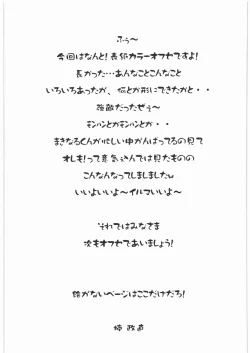 ふぅ～
今回はなんと！表紙カラーオフセですよ！
長かった…あんなことこんなこと
いろいろあったが、何とか形にできたかと・・
強敵だったぜぇ～
モンハンとかモンハンとか・・
まきなるくんが忙しい中がんばってるの見て
オレも！って意気込んでは見たものの
こんなんなってしましましたw
いいよいいよ～イルフいいよ～
それではみなさま
次もオフセであいましょう！
絵がないページはここだけだろ！